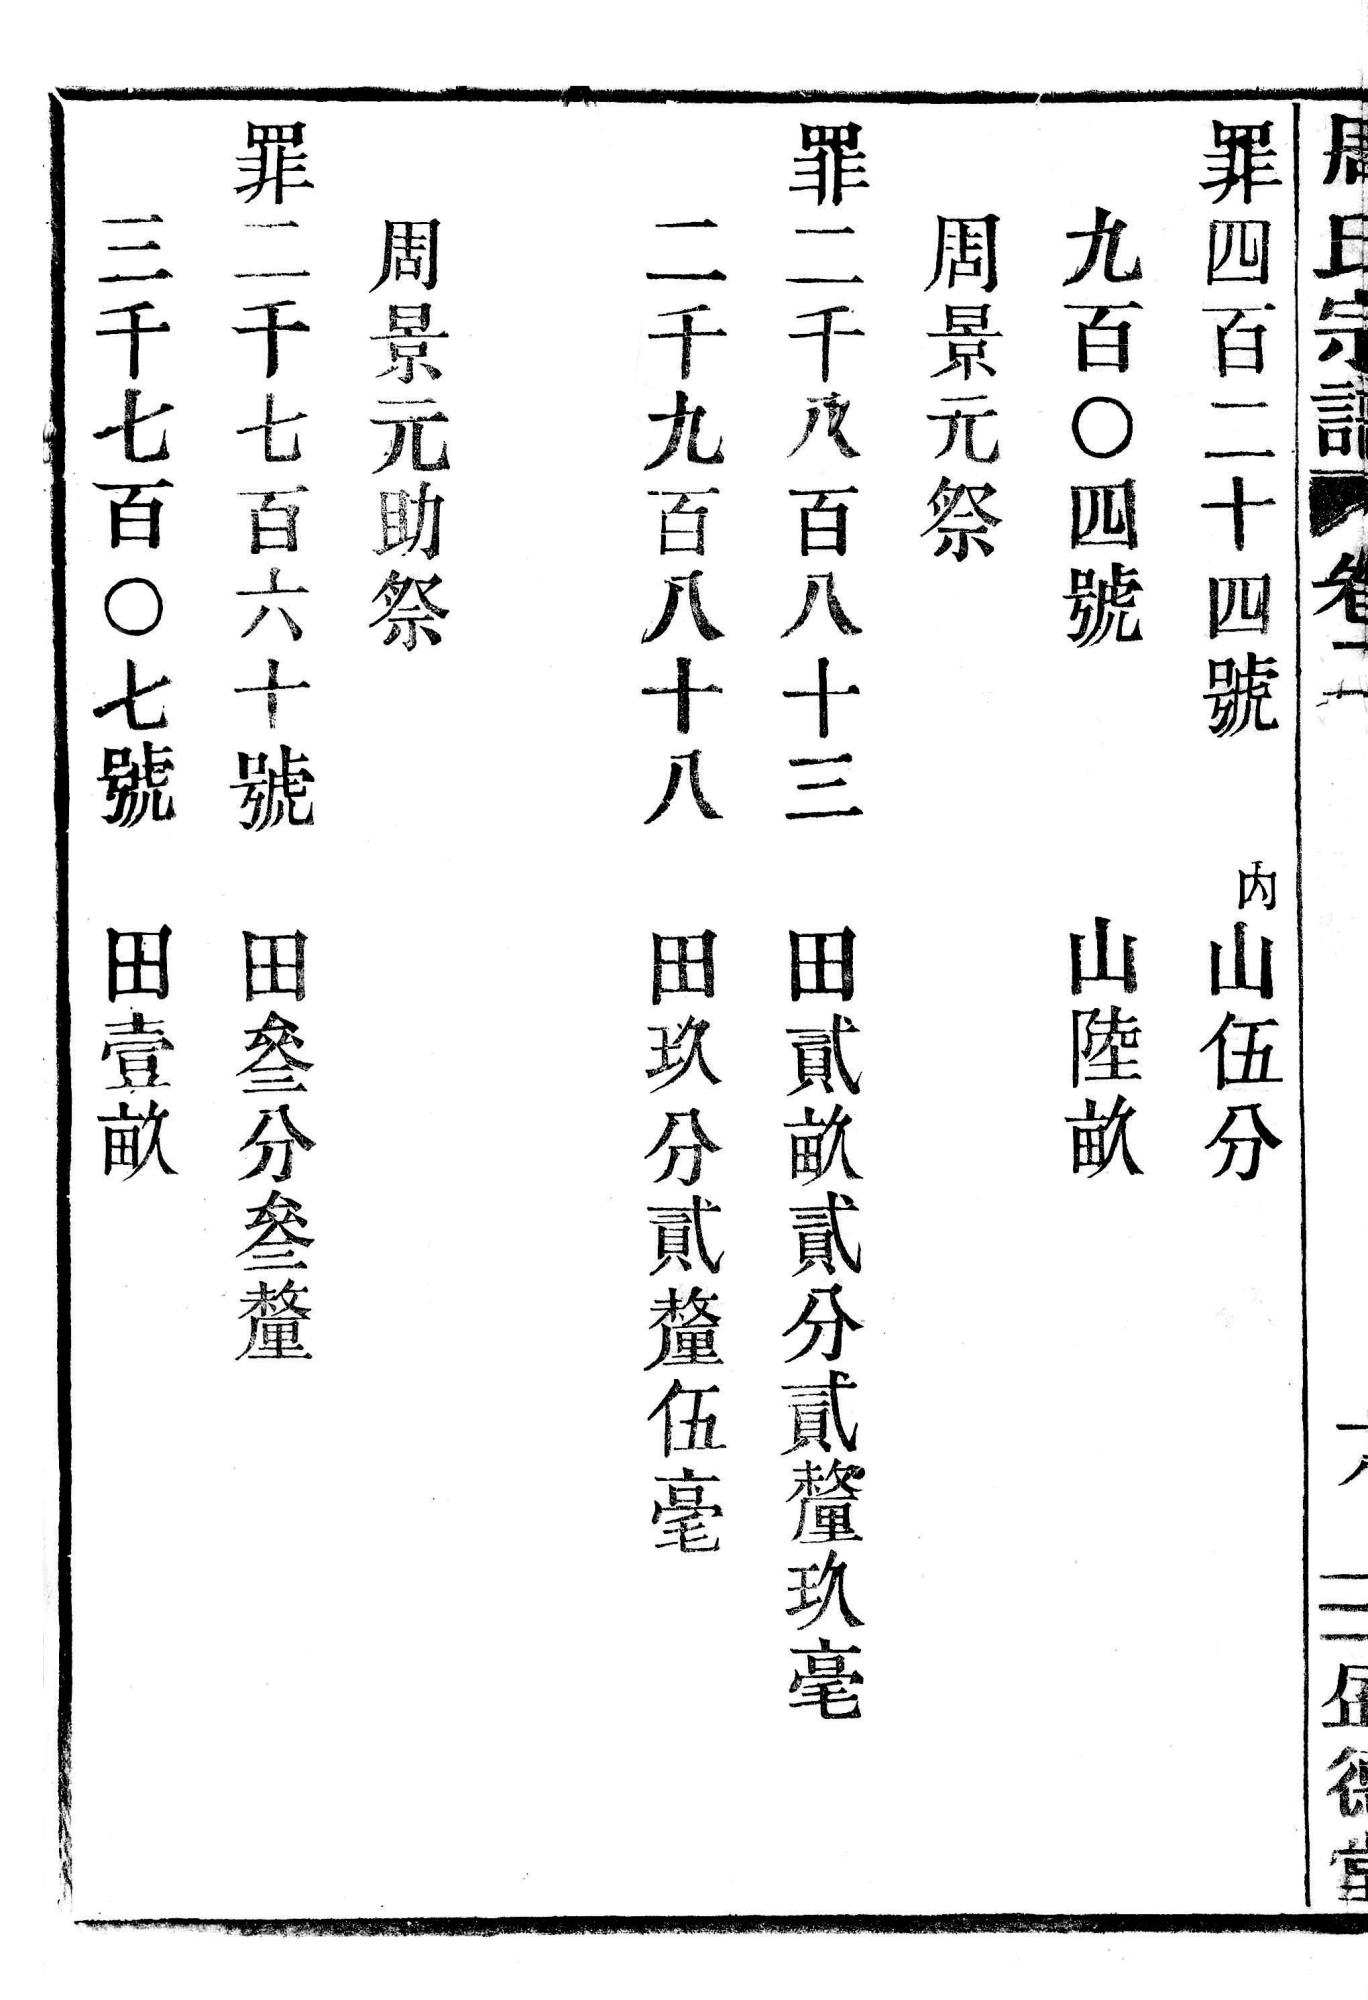 周氏宗譜 卷十一 十八 三 盛德堂
罪四百二十四號 内山伍分
九百〇四號 山陸畝
周景元祭
罪二千八百八十三 田貳畝貳分貳釐玖毫
二千九百八十八 田玖分貳釐伍毫
周景元助祭
罪二千七百六十號 田叄分叄釐
三千七百〇七號 田壹畝